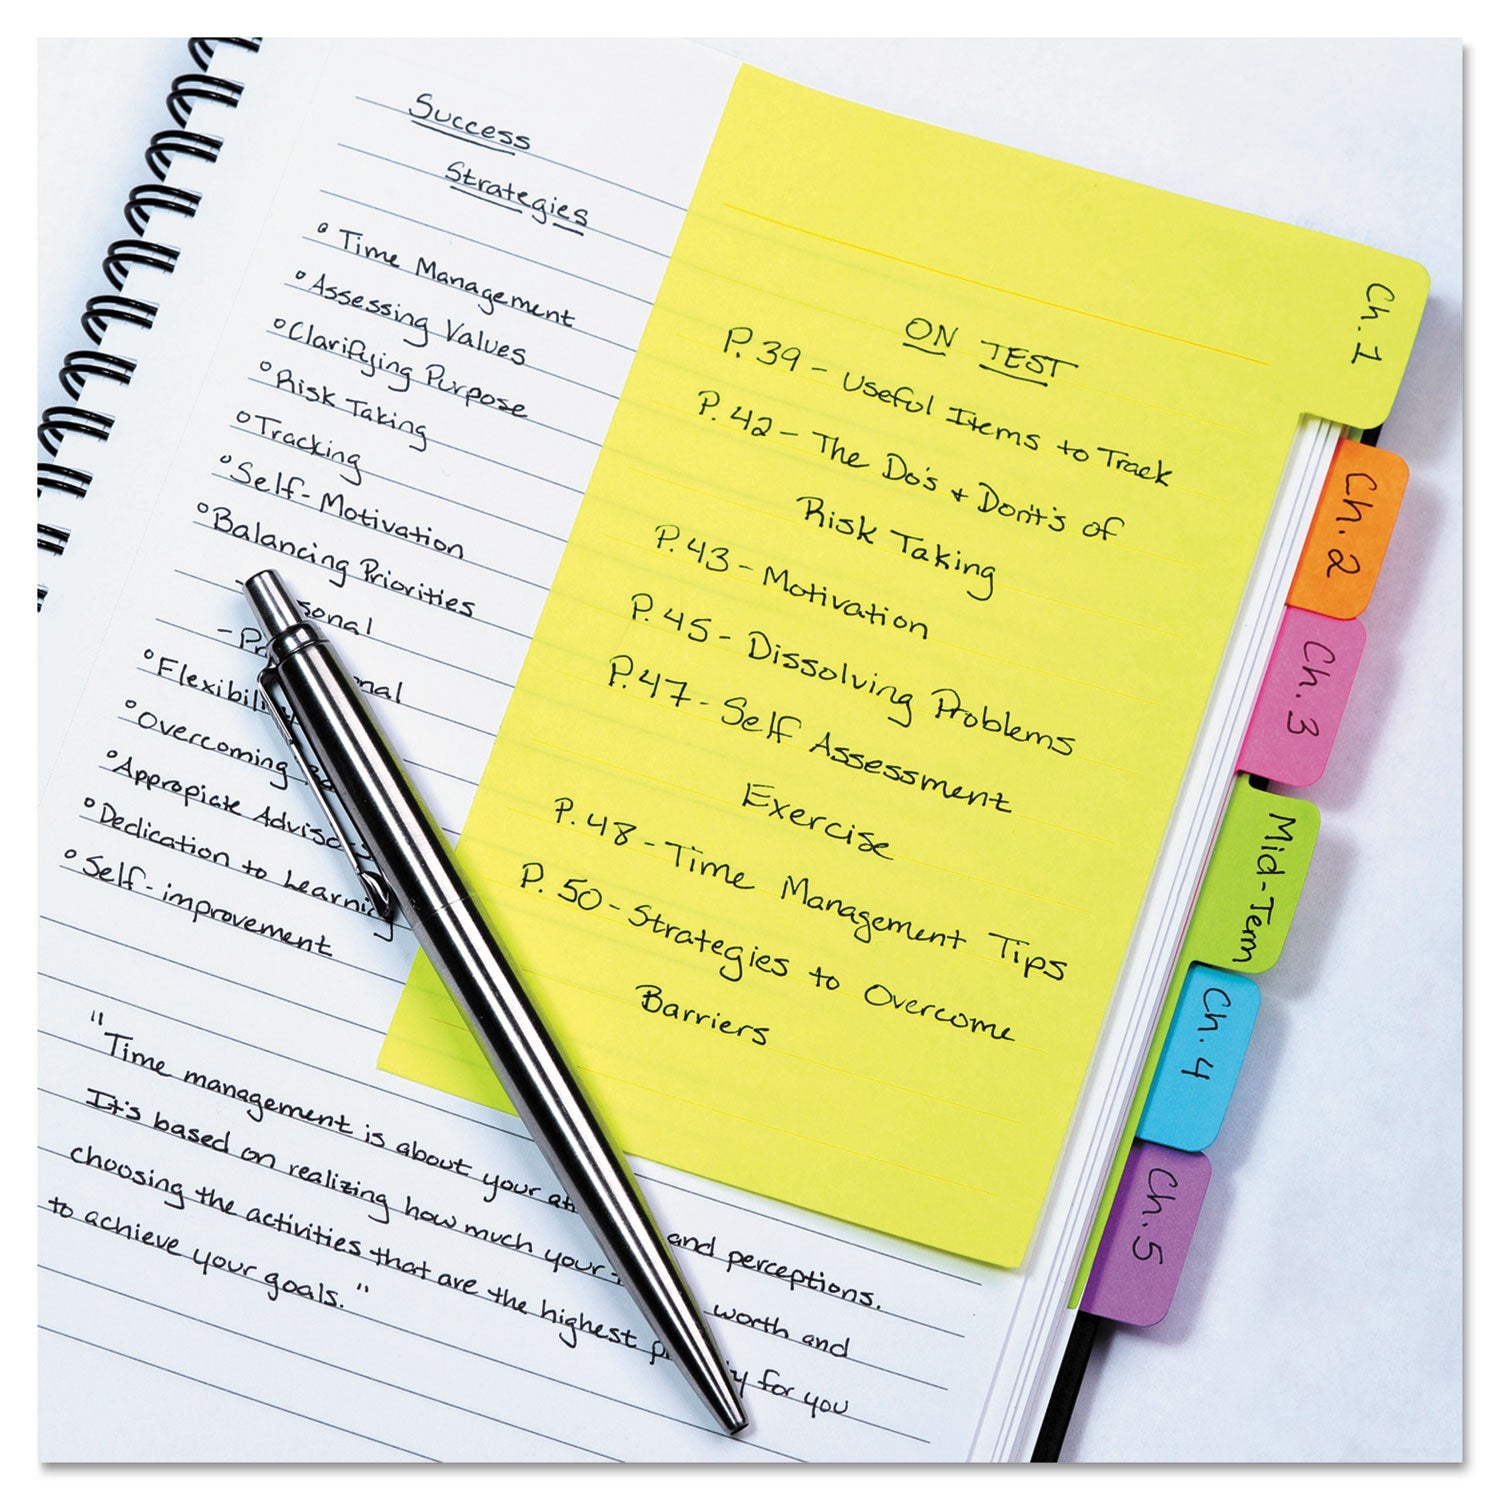 Success
Strategies
° Time Management
° Assessing Values
° Clarifying Purpose
° Risk Taking
° Tracking
° Self-Motivation
° Balancing Priorities
-
-
° Flexibility
° Overcoming
° Appropiate
° Dedication to Learning
° Self-improvement
"Time management is about your and perceptions.
It's based on realizing how much your worth and
choosing the activities that are the highest priority for you
to achieve your goals."
ON TEST
P. 39 - Useful Items to Track
P. 42 - The Do's + Dont's of
Risk Taking
P. 43 - Motivation
P. 45 - Dissolving Problems
P. 47 - Self Assessment
Exercise
P. 48 - Time Management Tips
P. 50 - Strategies to Overcome
Barriers
Ch. 1
Ch. 2
Ch. 3
Mid-Term
Ch. 4
Ch. 5